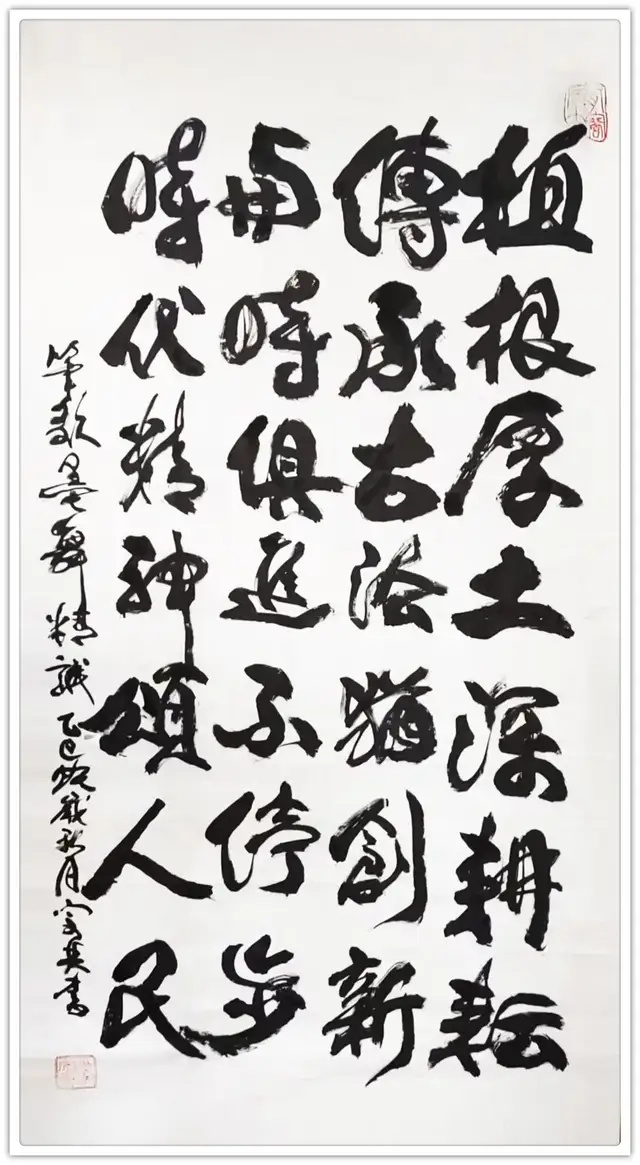 植根厚土深耕耘
傳承古法猶創新
與時俱進不停步
時代精神頌人民
筆歌墨舞精誠乙巳蛇歲秋月英書